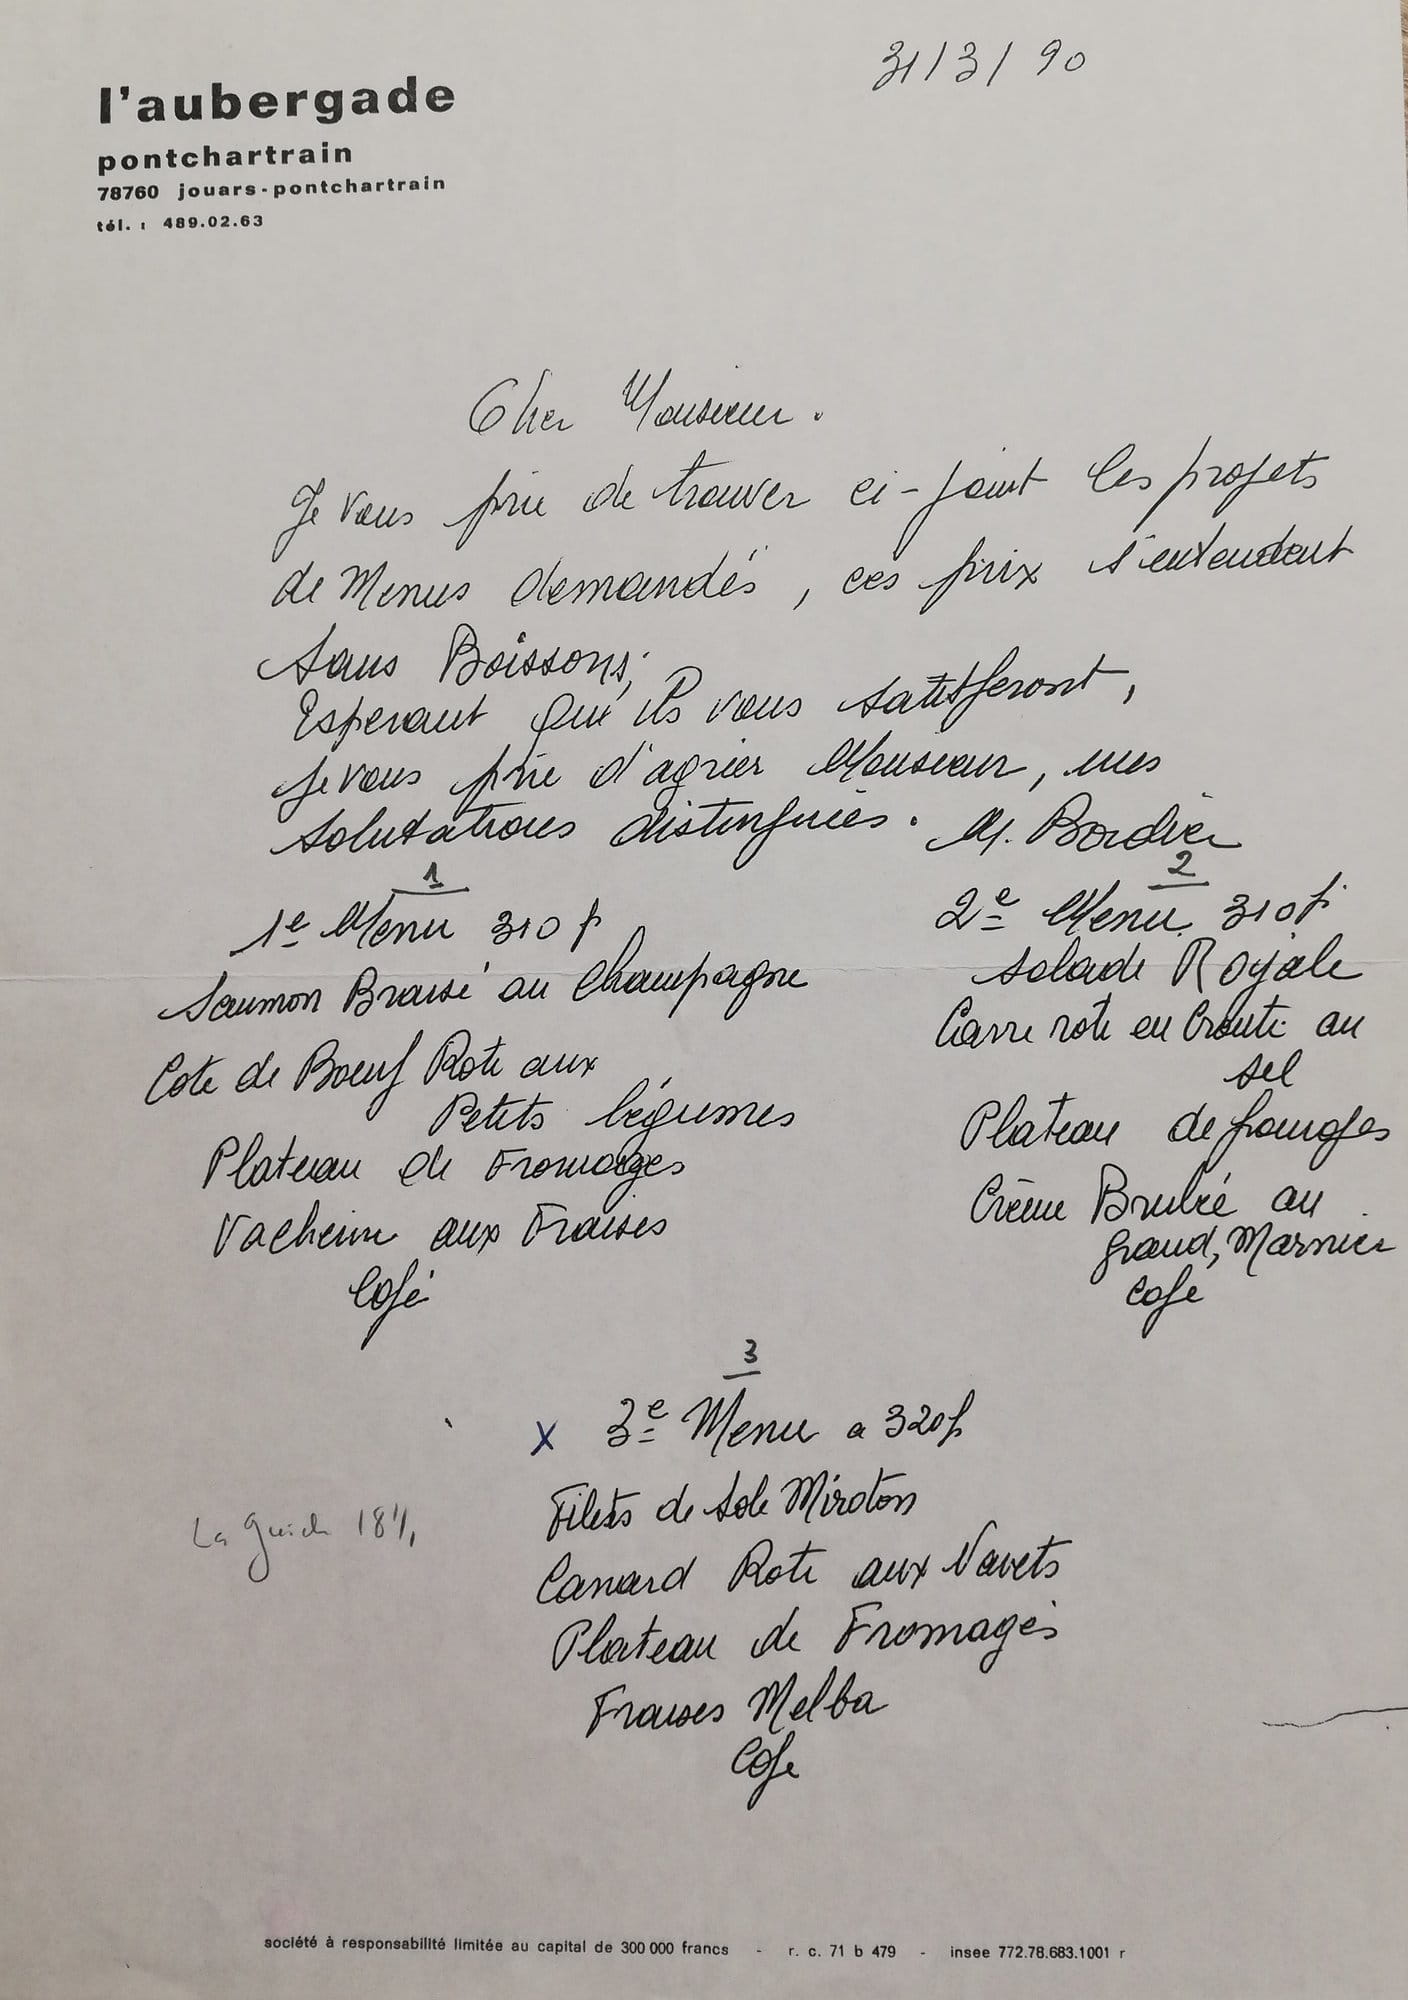 31/3/90
l'aubergade
pontchartrain
78760 jouars-pontchartrain
tél. : 489.02.63
Cher Monsieur.
Je vous prie de trouver ci-joint les projets
de Menus demandés, ces prix s'entendent
Sans Boissons;
Esperant que ils vous satisferont,
je vous prie d'agréer Monsieur, mes
salutations distinguées. M. Bordier
1
1e Menu 310 f
Saumon Braisé au Champagne
Cote de Boeuf Roti aux
Petits légumes
Plateau de Fromages
Vacherin aux Fraises
Café
2
2e Menu 310 f
Salade Royale
Carre roti en Croute au
sel
Plateau de
Crème Brulée au
grand, Marnier
Cafe
3
X 3e Menu a 320 f
Filets de Sole Miroton
Canard Roti aux Navets
Plateau de Fromages
Fraises Melba
Cafe
La
société à responsabilité limitée au capital de 300 000 francs - r. c. 71 b 479 - insee 772.78.683.1001 r